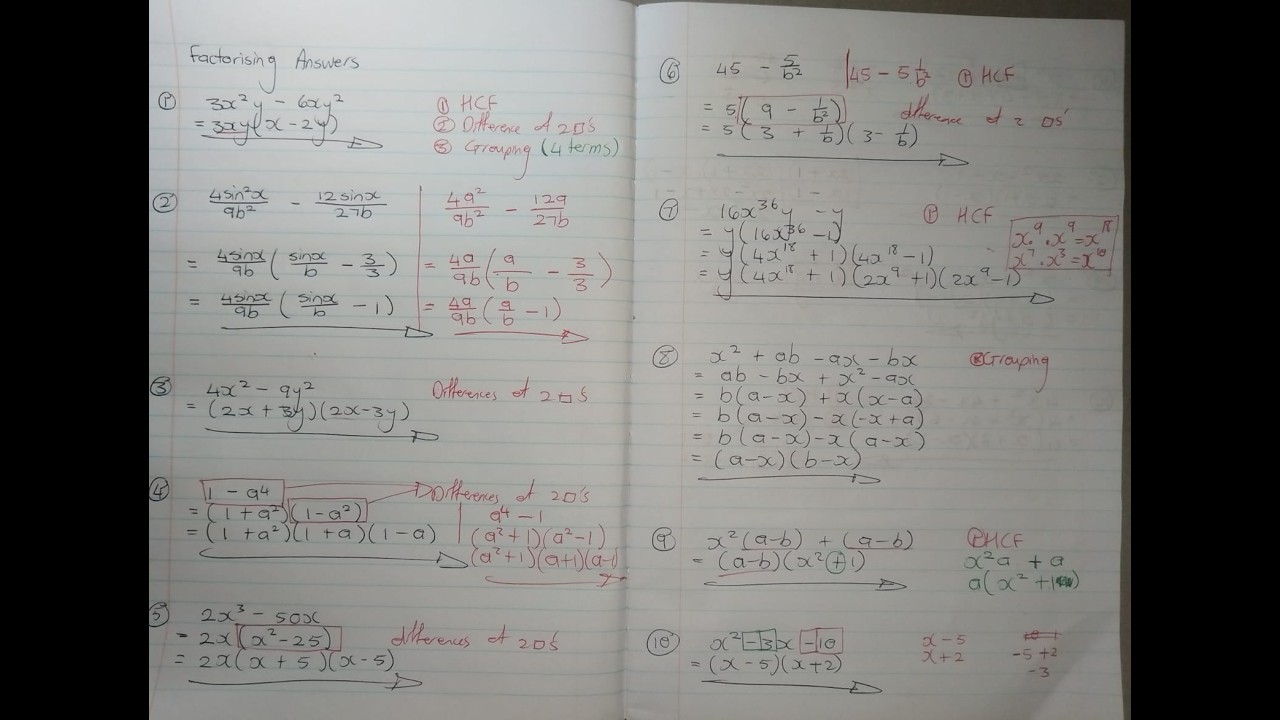 Factorising Answers
① 3x²y - 6xy² ① HCF
= 3xy(x - 2y) ② Difference of 2□'s
③ Grouping (4 terms)
② 4sin²x/9b² - 12sinx/27b | 4a²/9b² - 12a/27b
= 4sinx/9b (sinx/b - 3/3) | = 4a/9b (a/b - 3/3)
= 4sinx/9b (sinx/b - 1) | = 4a/9b (a/b - 1)
③ 4x² - 9y² Differences of 2□'s
= (2x + 3y)(2x - 3y)
④ 1 - a⁴ Differences of 2□'s
= (1 + a²)(1 - a²) | a⁴ - 1
= (1 + a²)(1 + a)(1 - a) | (a² + 1)(a² - 1)
(a² + 1)(a + 1)(a - 1
⑤ 2x³ - 50x
= 2x(x² - 25) differences of 2□'s
= 2x(x + 5)(x - 5)
⑥ 45 - 5/b² | 45 - 5 1/b² ① HCF
= 5(9 - 1/b²) difference of 2 □s'
= 5(3 + 1/b)(3 - 1/b)
⑦ 16x³⁶y - y ① HCF
= y(16x³⁶ - 1)
= y(4x¹⁸ + 1)(4x¹⁸ - 1)
= y(4x¹⁸ + 1)(2x⁹ + 1)(2x⁹ - 1)
x⁹ . x⁹ = x¹⁸
x⁷ . x³ = x¹⁰
⑧ x² + ab - ax - bx Grouping
= ab - bx + x² - ax
= b(a - x) + x(x - a)
= b(a - x) - x(-x + a)
= b(a - x) - x(a - x)
= (a - x)(b - x)
⑨ x²(a - b) + (a - b) ① HCF
= (a - b)(x² + 1) x²a + a
a(x² + 1)
⑩ x² - 3x - 10 x - 5
= (x - 5)(x + 2) x + 2 -5 + 2
-3